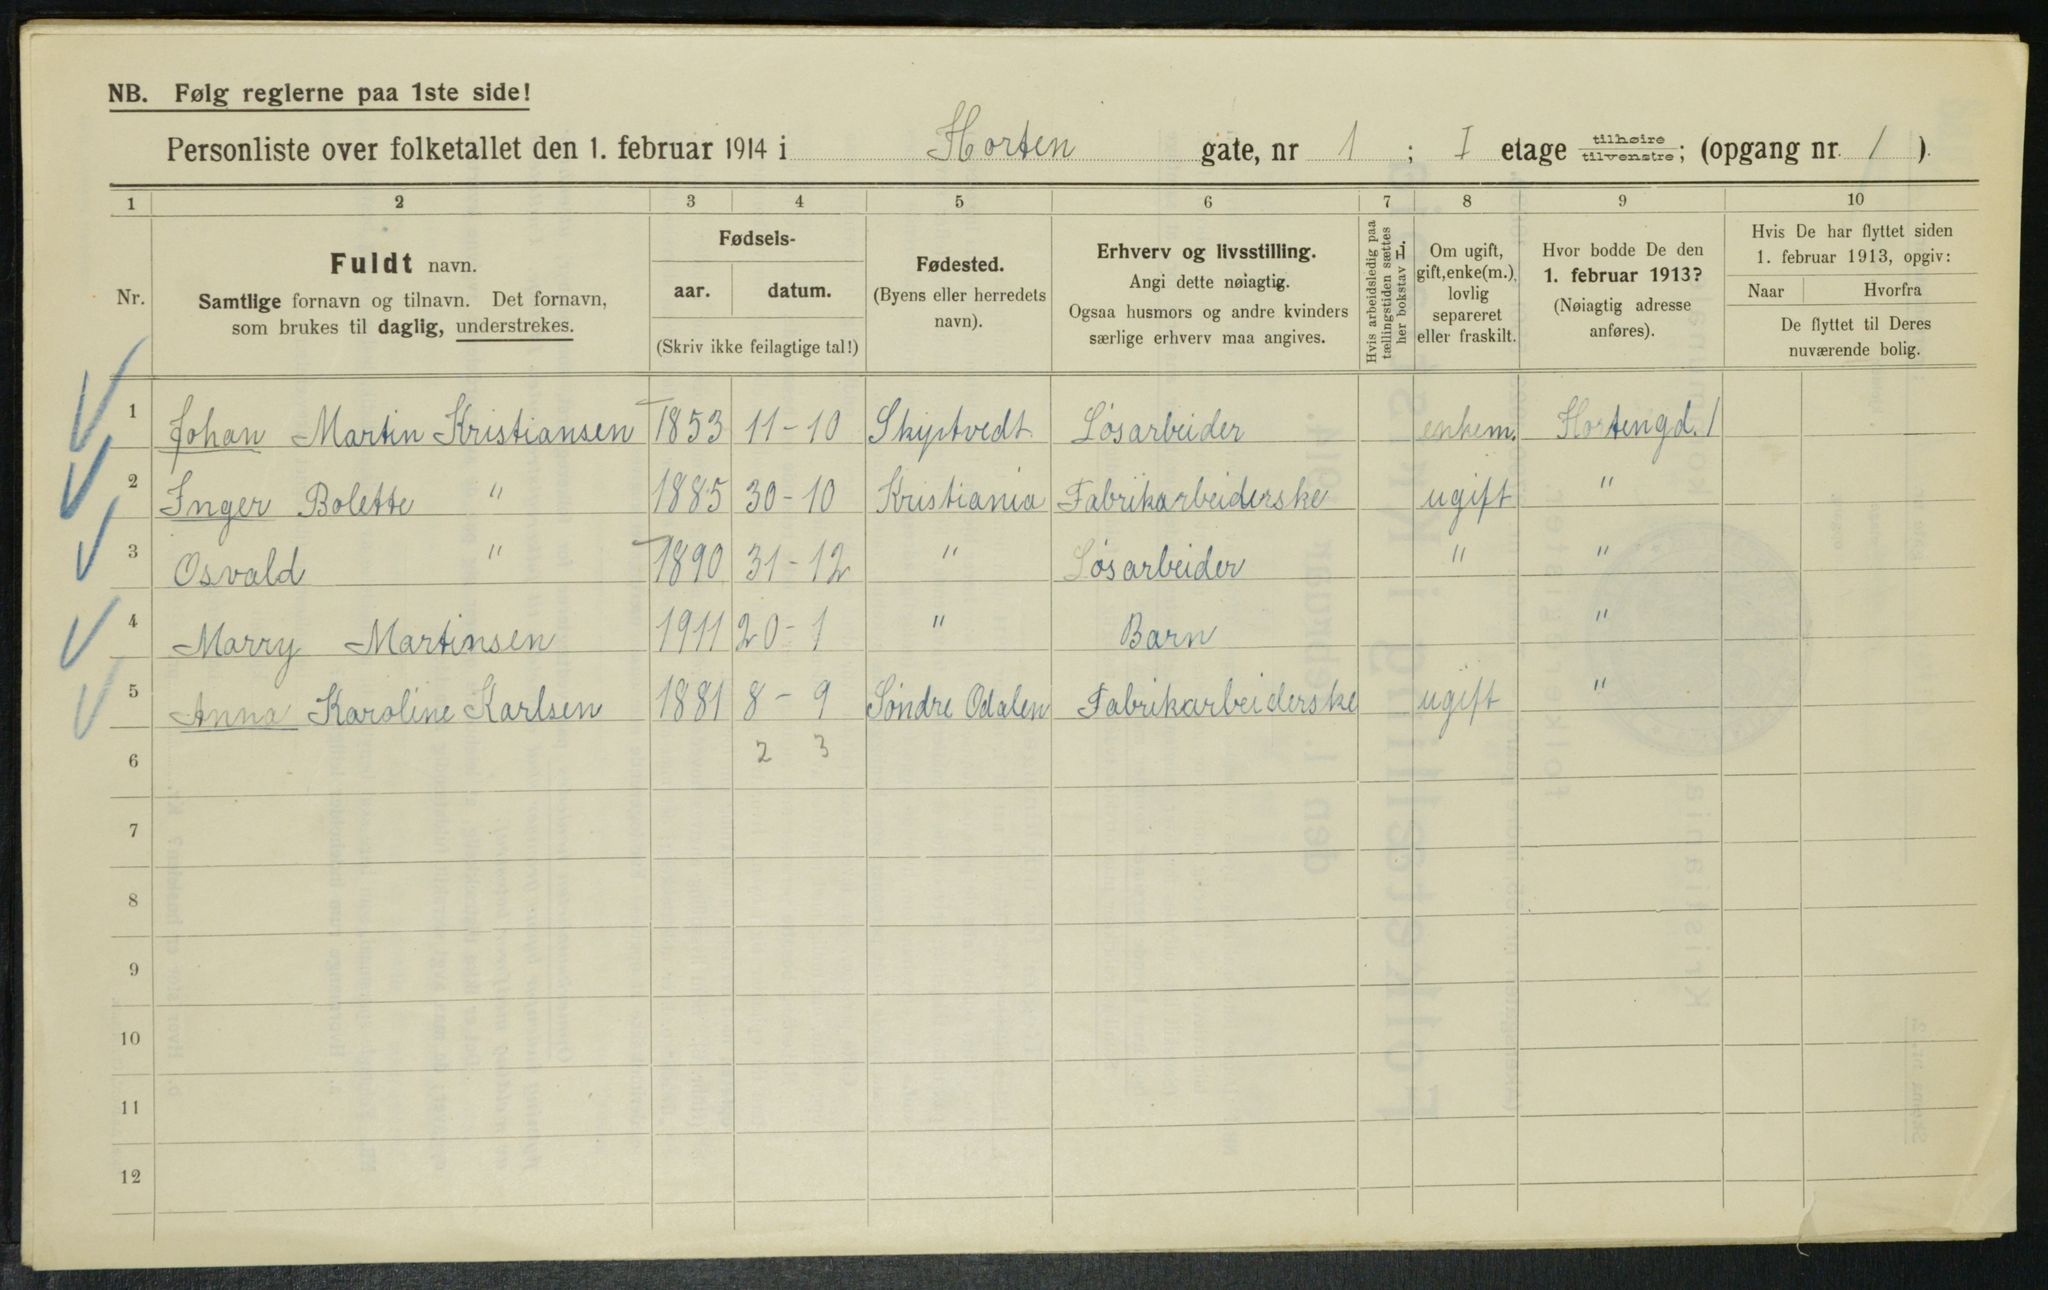 NB. Følg reglerne paa 1ste side!
Personliste over folketallet den 1. februar 1914 i Horten gate, nr 1 ; I etage tilhøire / tilvenstre; (opgang nr. 1 ).
1 2 3 4 5 6 7 8 9 10
Nr.
Fuldt navn.
Samtlige fornavn og tilnavn. Det fornavn,
som brukes til daglig, understrekes.
Fødsels-
aar. datum.
(Skriv ikke feilagtige tal!)
Fødested.
(Byens eller herredets
navn).
Erhverv og livsstilling.
Angi dette nøiagtig.
Ogsaa husmors og andre kvinders
særlige erhverv maa angives.
Hvis arbeidsledig paa
tællingstiden sættes
her bokstav L.
Om ugift,
gift, enke(m.),
lovlig
separeret
eller fraskilt.
Hvor bodde De den
1. februar 1913?
(Nøiagtig adresse
anføres).
Hvis De har flyttet siden
1. februar 1913, opgiv:
Naar Hvorfra
De flyttet til Deres
nuværende bolig.
1 Johan Martin Kristiansen 1853 11-10 Skiptvedt Løsarbeider enkem. Hortengd. 1
2 Inger Bolette " 1885 30-10 Kristiania Fabrikarbeiderske ugift "
3 Osvald " 1890 31-12 " Løsarbeider " "
4 Marry Martinsen 1911 20-1 " Barn "
5 Anna Karoline Karlsen 1881 8-9 Søndre Odalen Fabrikarbeiderske ugift "
6 2 3
7
8
9
10
11
12